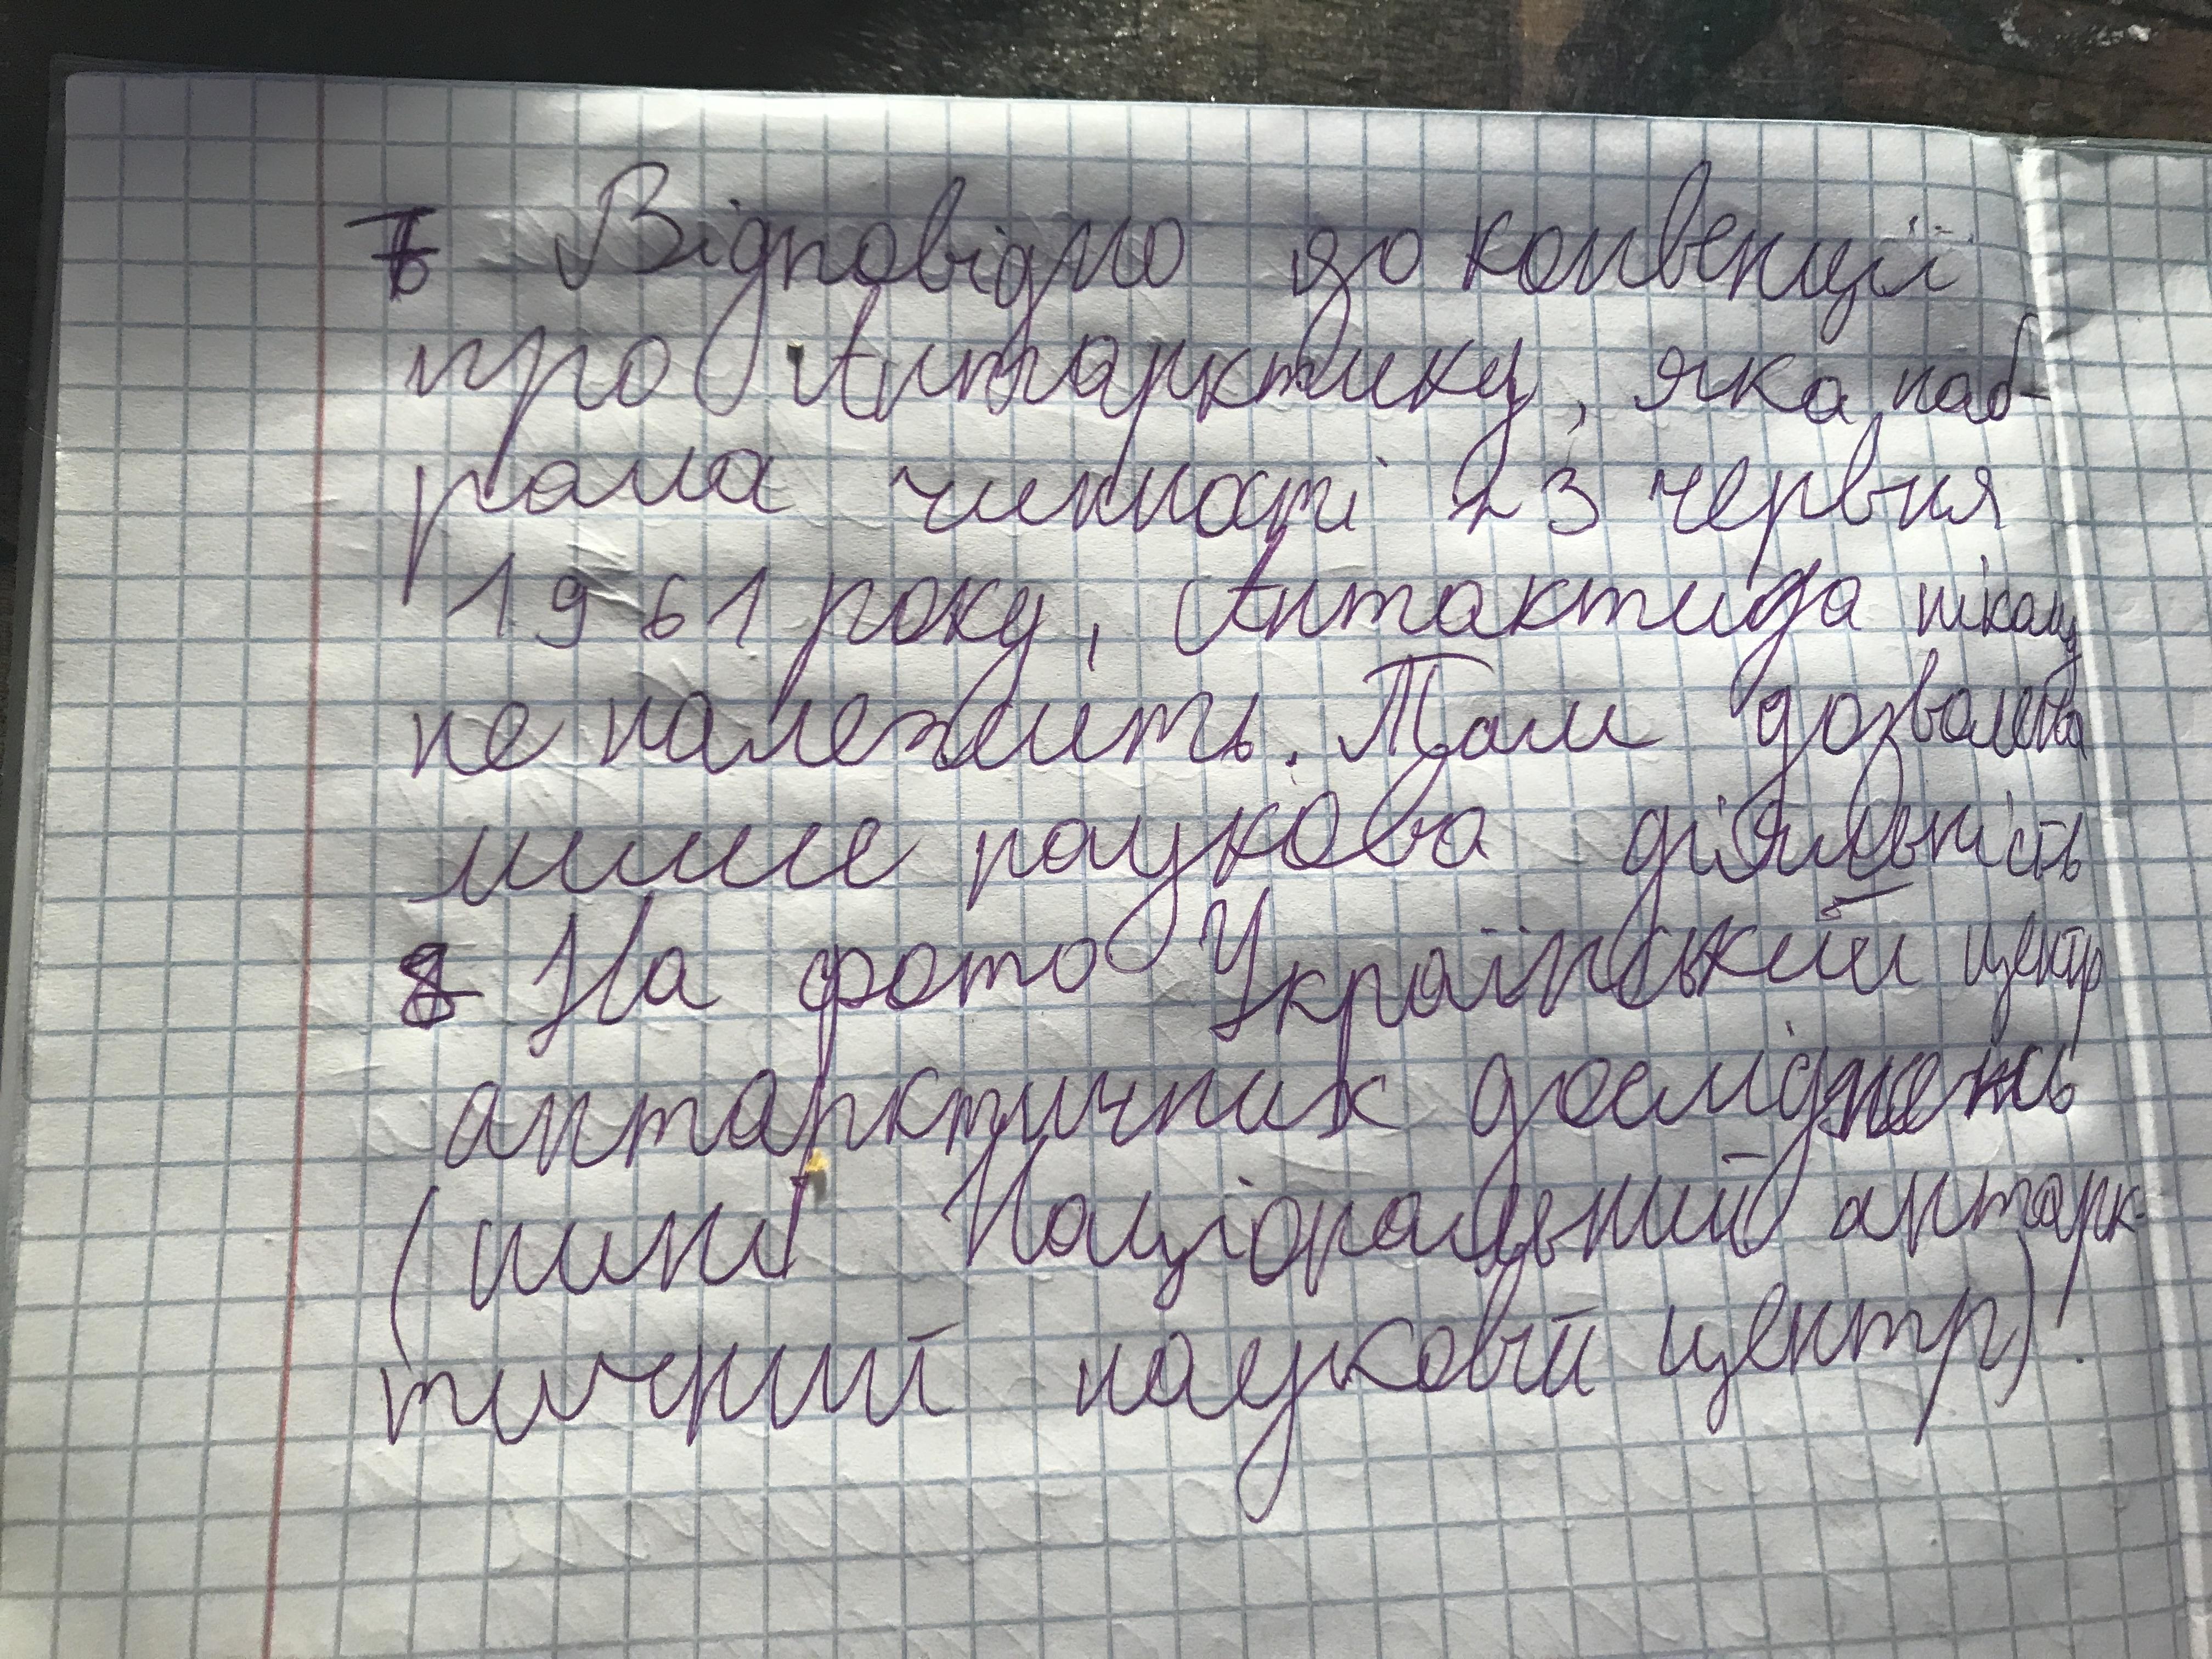 7 Відповідно до конвенції
про Антарктику, яка наб-
рала чинності 23 червня
1961 року, Антактида нікому
не належить. Там дозволена
лише наукова діяльність
8 На фото Український центр
антарктичних досліджень
(нині Національний антарк-
тичний науковий центр).